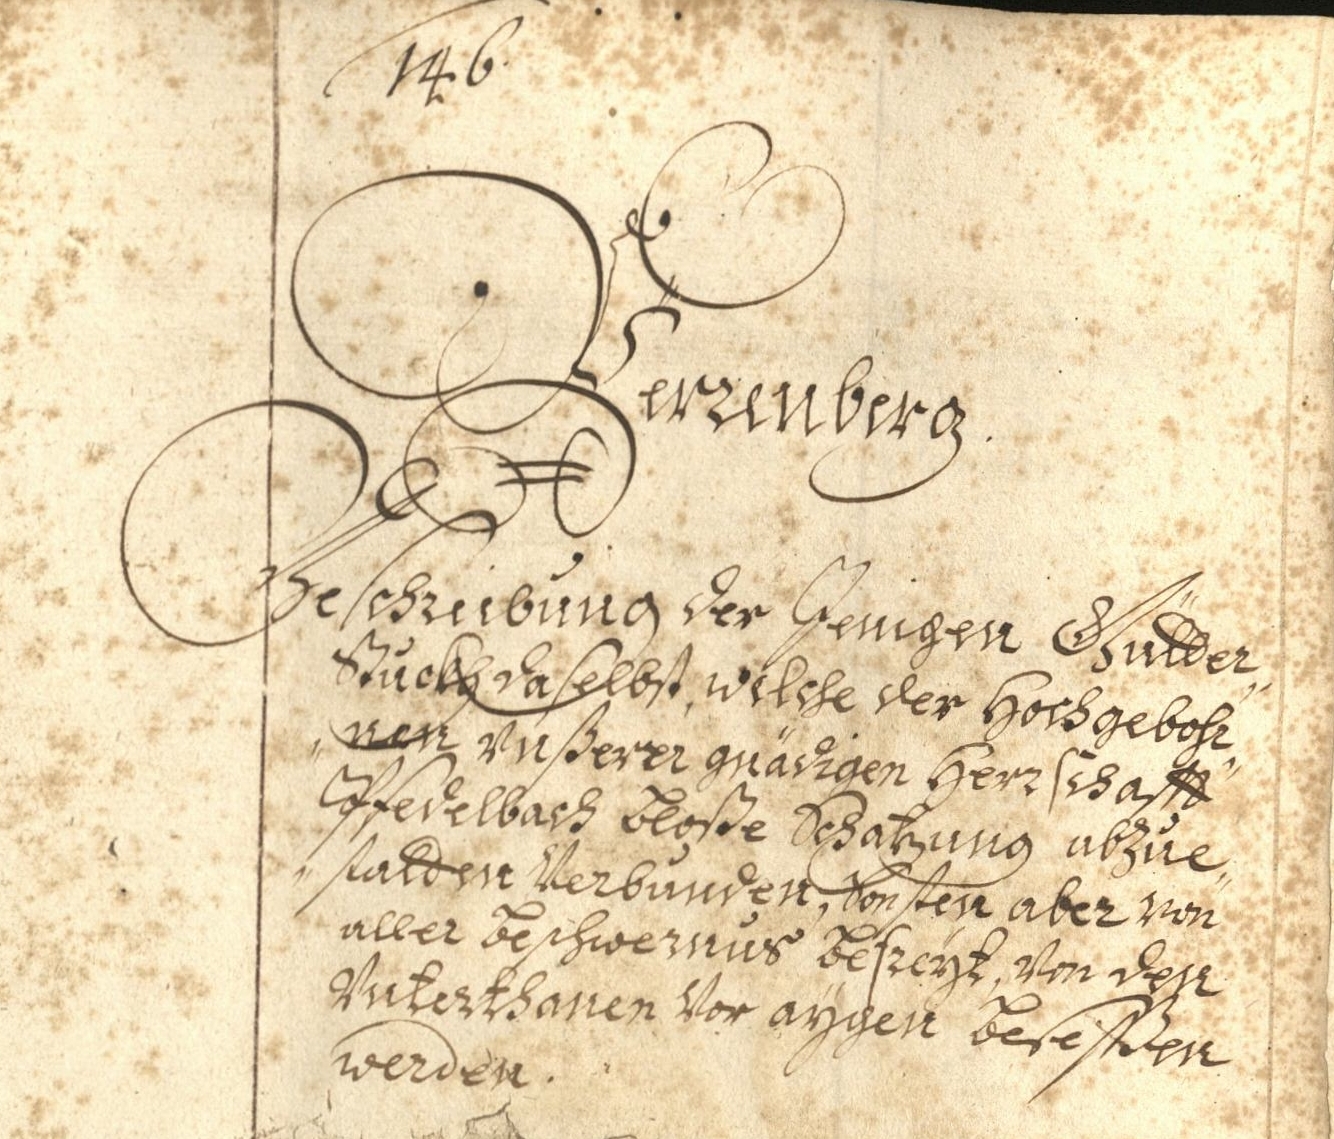 146.
Herrenberg.
Beschreibung der Jenigen Güldter„
Stuckh daselbst, welche der Hochgebohr„
„nen Vnßerer gnädigen Herrschafft
Pfedelbach bloße Schatzung abzue„
„statten Verbunden, Sonsten aber von
aller Beschwernus befreyt, Von den
Vnterthanen Vor aygen beseßen
werden.